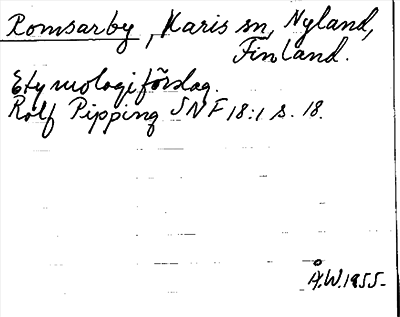 Romsarby, Karis sn, Nyland,
Finland.
Etymologiförslag.
Rolf Pipping SNF 18:1 s. 18.
Å.W. 1955-